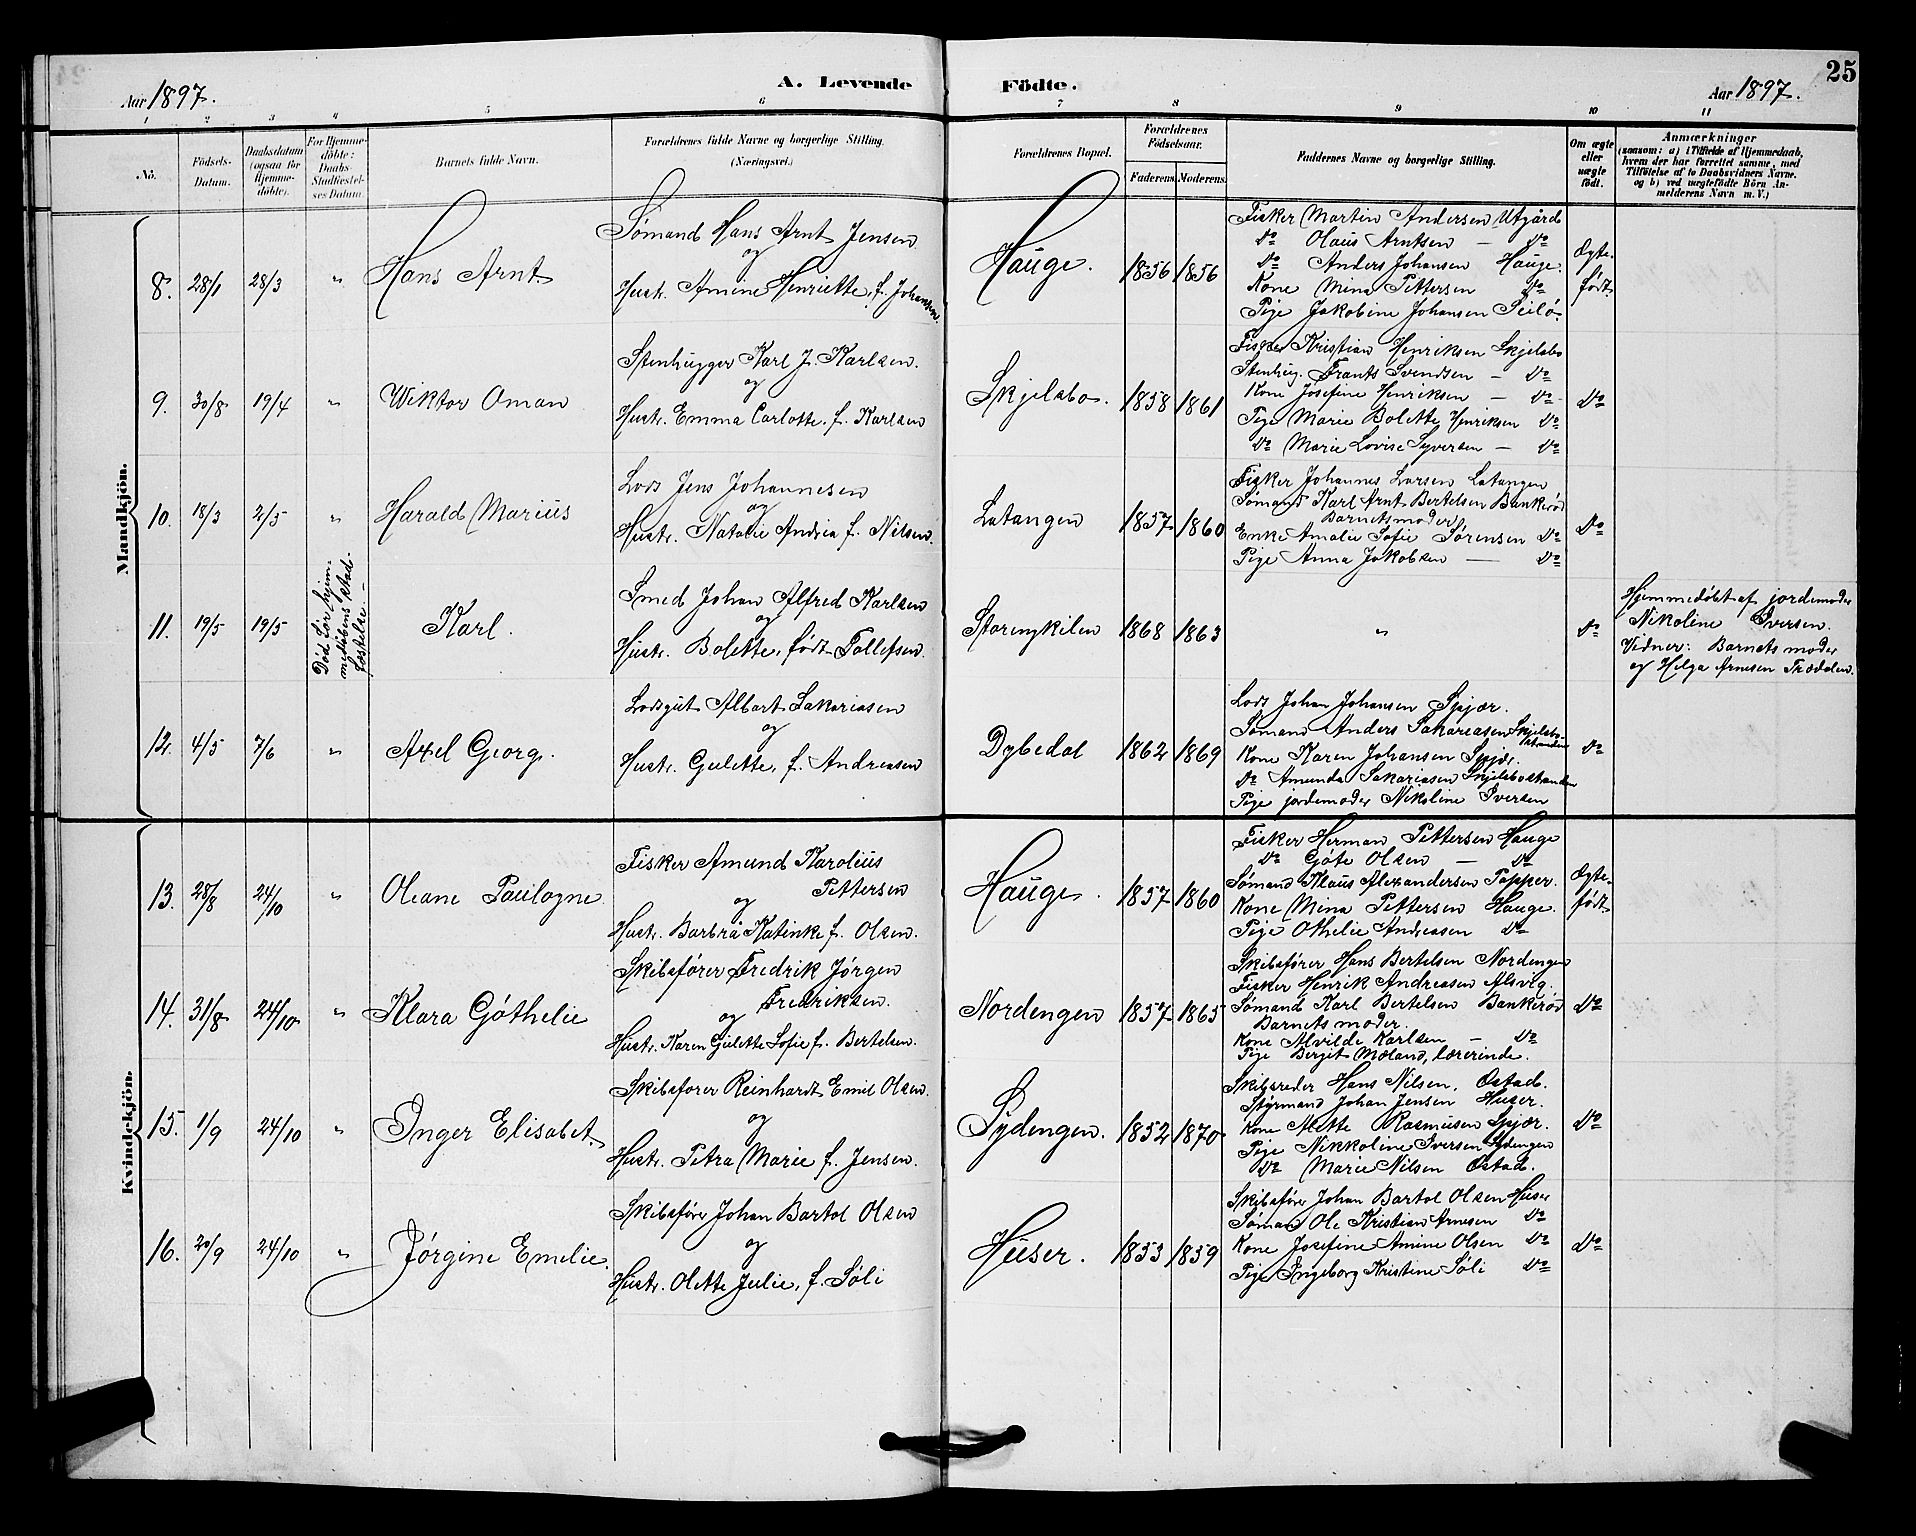 25
Aar 1897. A. Levende Födte. Aar 1897.
1 2 3 4 5 6 7 8 9 10 11
No.
Födsels-
Datum.
Daabsdatum
(ogsaa for
Hjemme-
döbte).
For Hjemme-
döbte:
Daabs-
Stadfæstel-
ses Datum.
Barnets fulde Navn.
Forældrenes fulde Navne og borgerlige Stilling.
(Næringsvei.)
Forældrenes Bopæl.
Forældrenes
Födselsaar.
Faderens. Moderens.
Faddernes Navne og borgerlige Stilling.
Om ægte
eller
uægte
födt.
Anmærkninger
(saasom: a) i Tilfælde af Hjemmedaab,
hvem der har forrettet samme, med
Tilföielse af to Daabsvidners Navne.
og b) ved uægtefödte Börn An-
melderens Navn m. V.)
Mandkjön.
8. 28/1 28/3 " Hans Arnt
Sømand Hans Arnt Jensen
og
Hustr. Amine Henriette, f. Johansen.
Hauge. 1856 1856
Fisker Martin Andersen Utgård
do Olaus Arntsen — do
do Anders Johansen Hauge.
Kone Mina Pettersen do
Pige Jakobine Johansen Seilø
Ægte-
født.
9. 30/8 19/4 " Wiktor Oman
Stenhugger Karl J. Karlsen.
og
Hustr. Emma Carlotte. f. Karlsen
Skjelsbo. 1858 1861
Fisker Kristian Henriksen Skjelsbo
Stenhug. Frants Svendsen — do
Kone Josefine Henriksen — do
Pige Marie Bolette Henriksen do
do Marie Lovise Syversen — do
do
10. 18/3 2/5 " Harald Marius
Lods Jens Johannesen
og
Hustr. Natalie Andrea f. Nilsen.
Latangen 1857 1860
Fisker Johannes Larsen Latangen
Sømand Karl Arnt Bertelsen Bankerød
Barnets moder
Enke Amalie Sofie Sørensen do
Pige Anna Jakobsen — do
do
11. 19/5 19/5
Død før hjem-
medåbens stad-
fæstelse. —
Karl.
Smed Johan Alfred Karlsen
og
Hustr. Bolette, født Tollefsen.
Storenykilen 1868 1863 " do
Hjemmedøbt af jordemoder
Nikoline Iversen.
Vidner: Barnets moder
og Helga Arnesen Trædalen.
12. 4/5 7/6 " Axel Georg.
Lodsgut Albert Sakariasen
og
Hustr. Gulette, f. Andreasen
Dybedal 1862 1869
Lods Johan Johansen Spjær.
Sømand Anders Sakariasen Skjelsbo-
stranden
Kone Karen Johansen Spjær.
do Amunda Sakariasen Skjelsbostranden
Pige jordemoder Nikoline Iversen
do
Kvindekjön.
13. 28/8 24/10 " Oleane Paulogne
Fisker Amund Karolius
Pettersen
og
Hustr. Barbra Katinke f. Olsen.
Hauge. 1857 1860
Fisker Herman Pettersen Hauge
do Gøte Olsen — do
Sømand Klaus Alexandersen Papper.
Kone Mina Pettersen Hauge.
Pige Othelie Andreasen do
Ægte-
født
14. 31/8 24/10 " Klara Gøthelie
Skibsfører Fredrik Jørgen
Fredriksen.
og
Hustr. Karen Gulette Sofie f. Bertelsen.
Nordengen 1857 1865
Skibsfører Hans Bertelsen Nordengen
Fisker Henrik Andreasen Alsvig.
Sømand Karl Bertelsen Bankerød
Barnets moder.
Kone Alvilde Karlsen — do
Pige Bergit Mæland, lærerinde.
do
15. 1/9 24/10 " Inger Elisabet
Skibsfører Reinhardt Emil Olsen.
og
Hustr. Petra Marie f. Jensen.
Sydengen. 1852 1870
Skibsreder Hans Nilsen. Østad.
Styrmand Johan Jensen Huser.
Kone Mette Rasmusen Spjær.
Pige Nikkoline Iversen Sydengen
do Marie Nilsen Østad.
do
16. 20/9 24/10 " Jørgine Emelie.
Skibsfører Johan Bartol Olsen
og
Hustr. Olette Julie, f. Søli
Huser. 1853 1859
Skibsfører Johan Bartol Olsen Huser
Sømand Ole Kristian Arnesen do
Kone Josefine Amine Olsen do
Pige Ingeborg Kristine Søli do
do